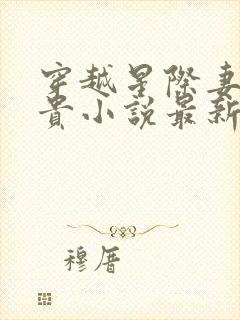 穿越星际妻
贵小说最新
穆厝